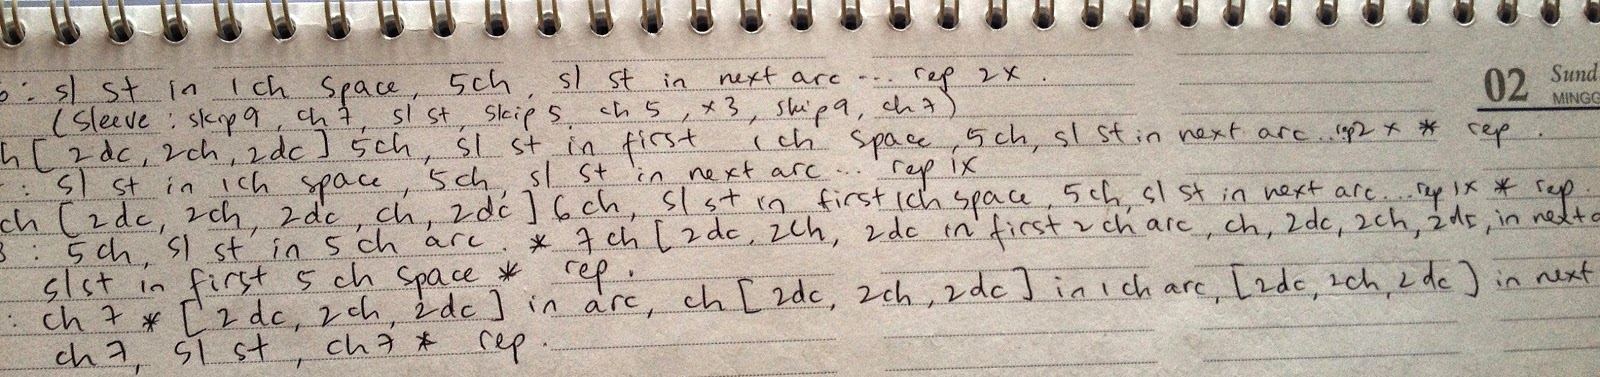 : sl st in 1ch space, 5ch, sl st in next arc ... rep 2x.
02 Sund
MINGG
(sleeve: skip 9, ch 7, sl st, skip 5, ch 5, x3, skip 9, ch 7)
h [2dc, 2ch, 2dc] 5ch, sl st in first 1ch space, 5ch, sl st in next arc... rep2x * rep.
: sl st in 1ch space, 5ch, sl st in next arc ... rep 1x
ch [2dc, 2ch, 2dc, ch, 2dc] 6ch, sl st in first 1ch space, 5ch, sl st in next arc... rep 1x * rep.
3: 5ch, sl st in 5 ch arc. * 7ch [2dc, 2ch, 2dc in first 2 ch arc, ch, 2dc, 2ch, 2dc, in next a
sl st in first 5 ch space * rep.
: ch 7 * [2dc, 2ch, 2dc] in arc, ch [2dc, 2ch, 2dc] in 1ch arc, [2dc, 2ch, 2dc] in next
ch 7, sl st, ch 7 * rep.